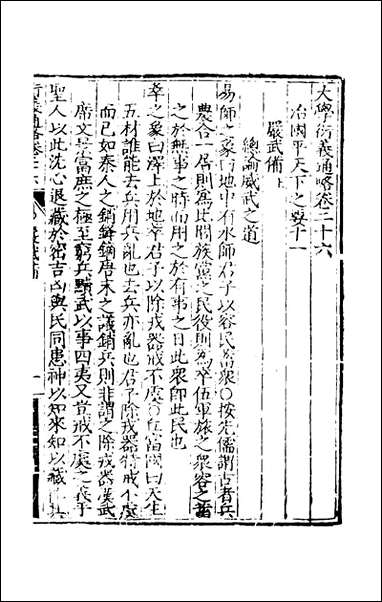 大學衍義通略卷二十六
治國平天下之要十一
嚴武備上
總論威武之道
易師之象曰地中有水師君子以容民畜衆○按先儒謂古者兵
農合一居則為比閭族黨之民役則為卒伍軍旅之衆容之畜
之於無事之時而用之於有事之日此衆即此民也
萃之象曰澤上於地萃君子以除戎器戒不虞○丘富國曰天生
五材誰能去兵用兵亂也去兵亦亂也君子除戎器特戒不虞
而已如秦人之銷鋒鏑唐末之議銷兵則非謂之除戎器漢武
席文景富庶之極至窮兵黷武以事四夷又豈戒不虞之義乎
聖人以此洗心退藏於密吉凶與民同患神以知來知以藏往其